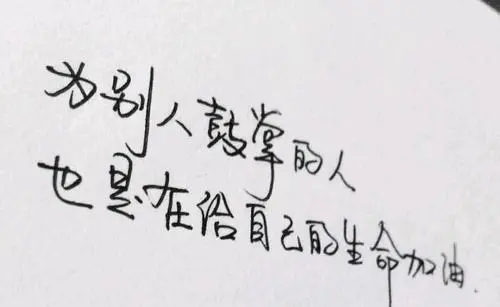 为别人鼓掌的人
也是在给自己的生命加油.